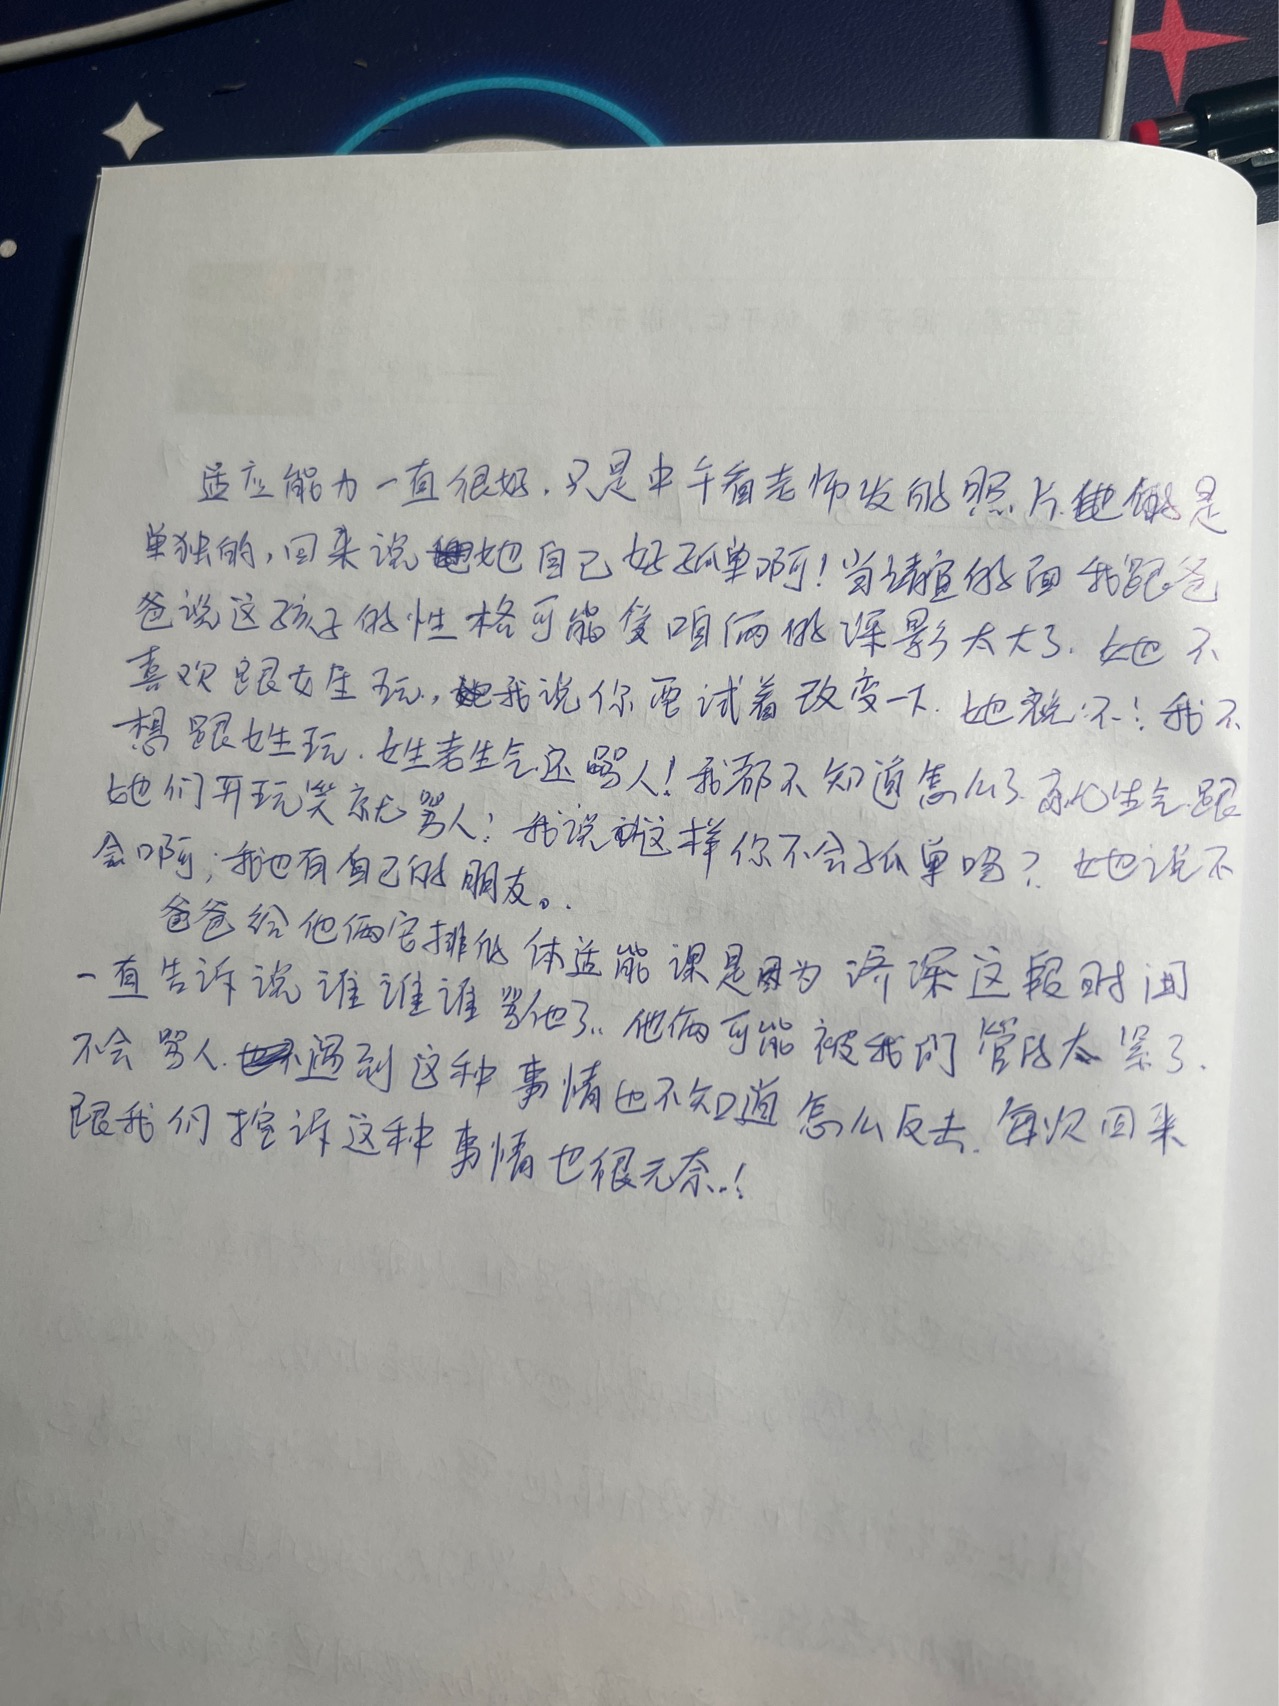 适应能力一直很好.只是中午看老师发的照片.她俩是
单独的,回来说她自己好孤单啊!当清宣的面我跟爸
爸说这孩子的性格可能受咱俩的深影太大了.她不
喜欢跟女生玩,我说你要试着改变一下.她说:不!我不
想跟女生玩.女生老生气还骂人!我都不知道怎么了就生气.跟
她们开玩笑就骂人;我说这样你不会孤单吗?她说不
会啊;我也有自己的朋友。.
爸爸给他俩安排的体适能课是因为济深这段时间
一直告诉说谁谁谁骂他了..他俩可能被我们管的太紧了.
不会骂人.遇到这种事情也不知道怎么反击.每次回来
跟我们控诉这种事情也很无奈..!